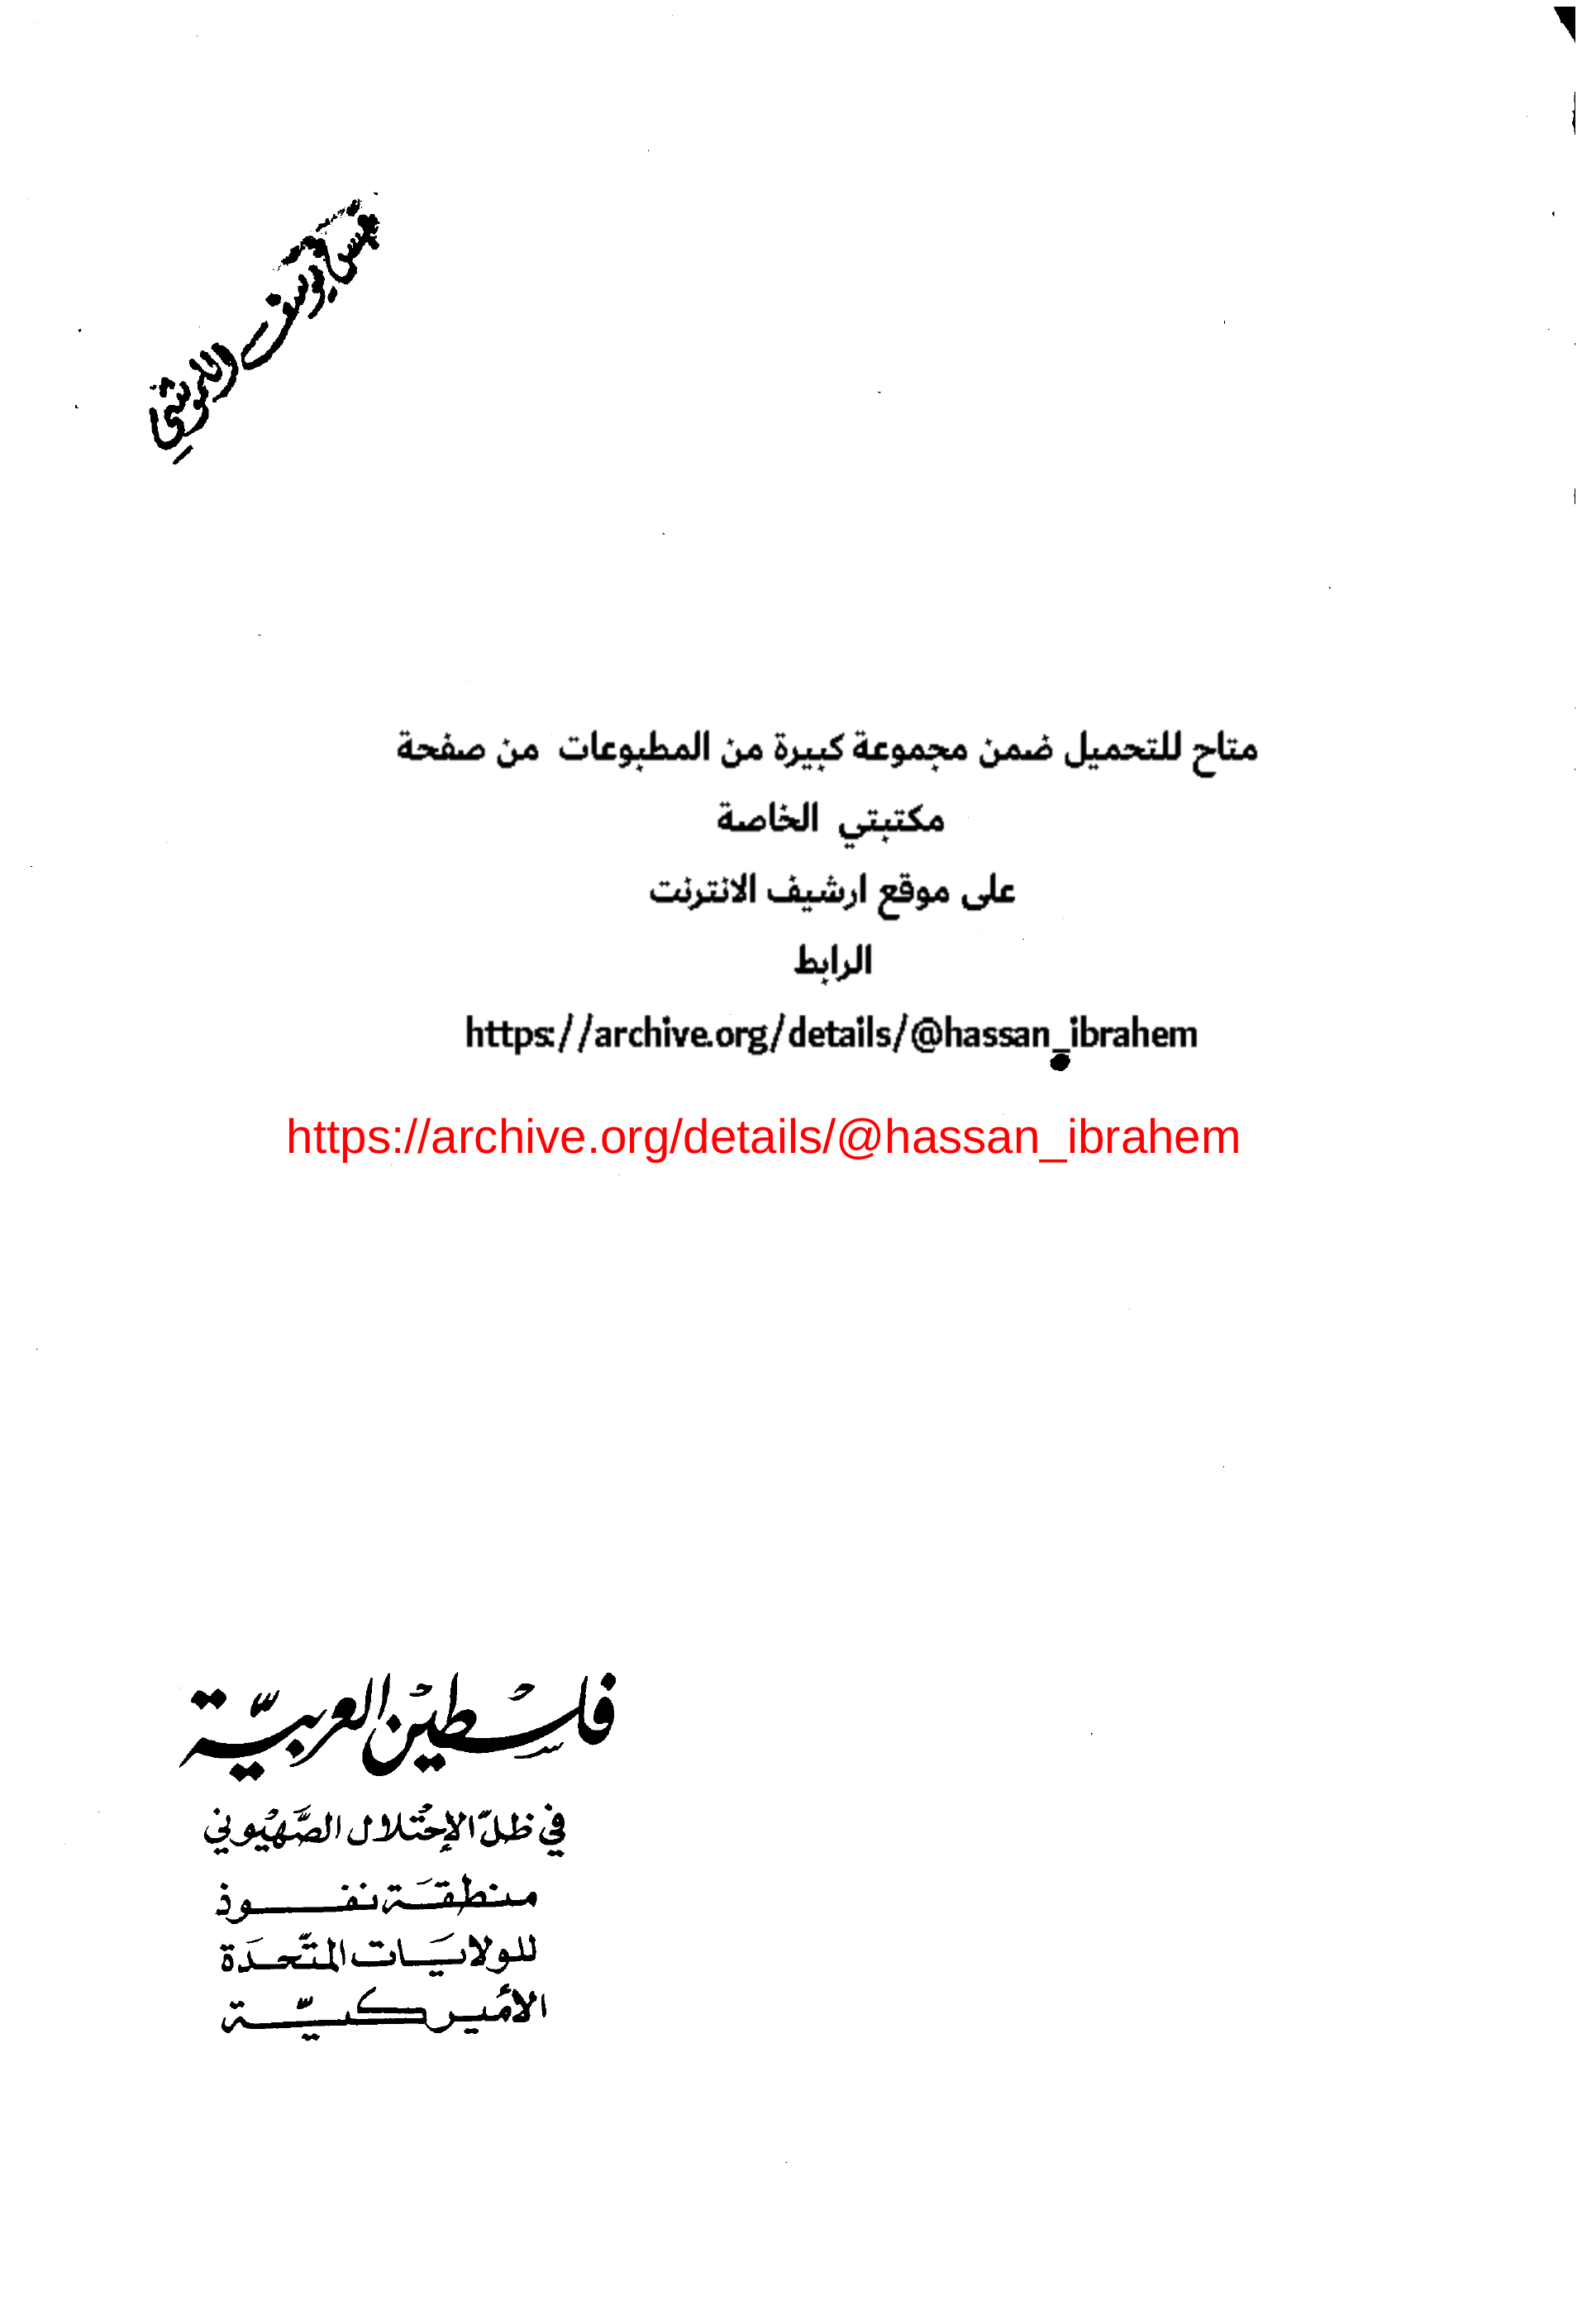 يوسف
متاح للتحميل ضمن مجموعة كبيرة من المطبوعات من صفحة
مكتبتي الخاصة
على موقع ارشيف الانترنت
الرابط
https://archive.org/details/@hassan_ibrahem
https://archive.org/details/@hassan_ibrahem
فلسْطيْن العربيّة
في ظلّ الإحْتلال الصَّهْيوني
منطقَة نفوذ
للولايَات المتّحدَة
الأميركيّة